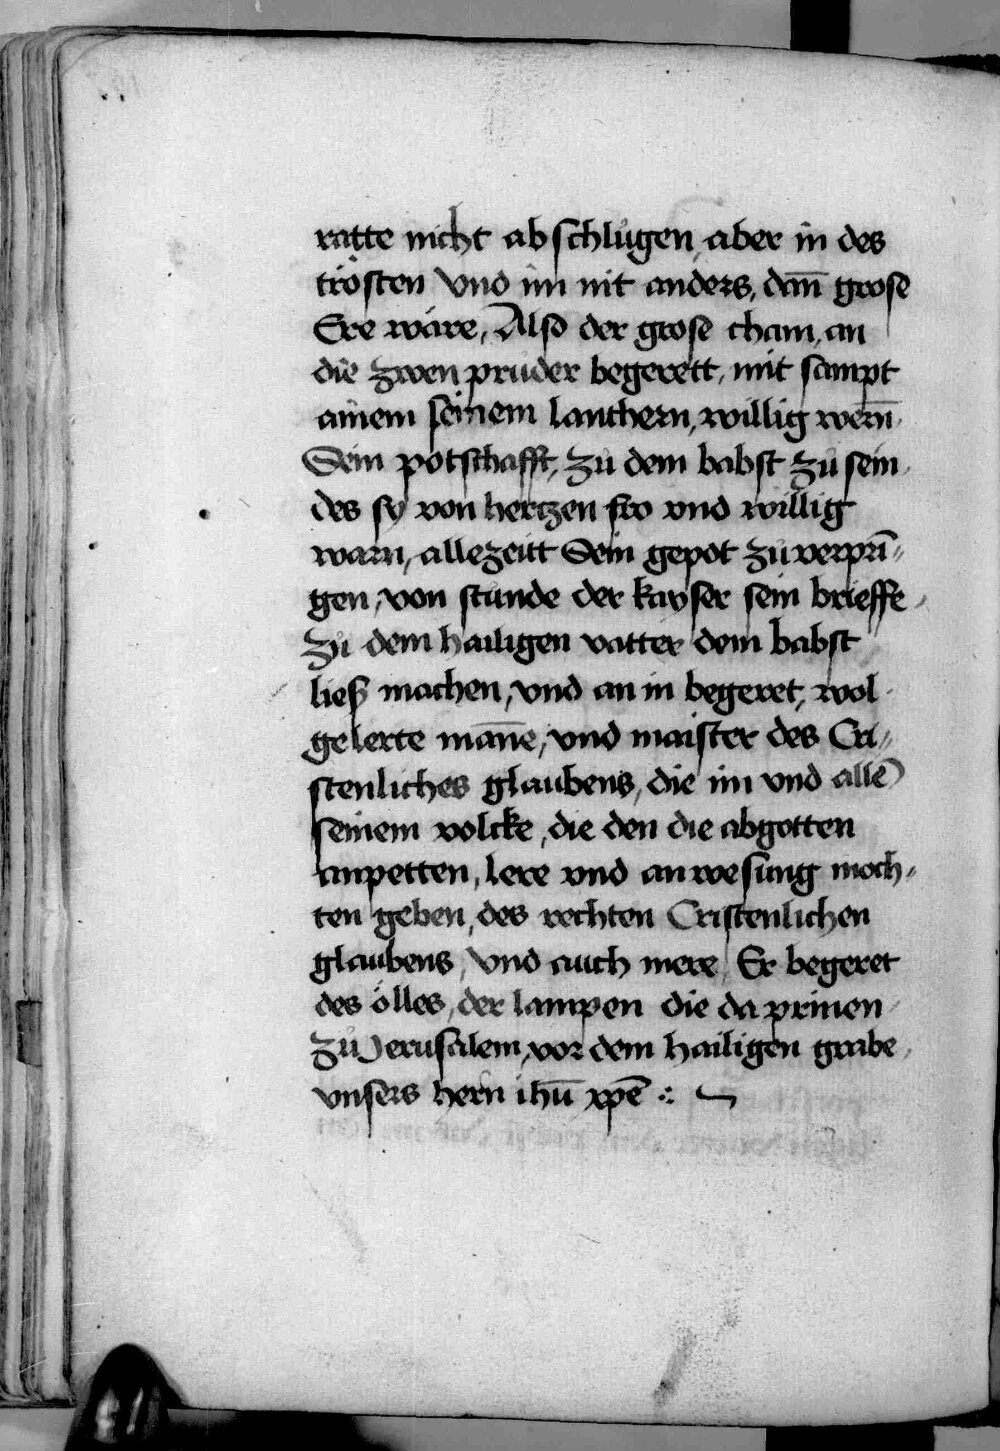 ratte nicht ab schlůgen, aber in des
trösten Vnd im nit anders, dan̄ grose
Ere wäre, Also der grose cham, an
die zwen prüder begerett, mit sampt
ainem seinem lanthern, willig wern̄
Sein potschafft, zů dem babst zů sein,
des sy von hertzen fro vnd willig
warn, allezeitt Sein gepot zů verprī⸗
gen, von stunde der kayser sein brieffe
zů dem hailigen vatter dem babst
ließ machen, vnd an in begeret, wol
gelerte man̄e, vnd maister des Cri⸗
stenliches glaubens, die im vnd allē
seinem volcke, die den die abgotten
anpetten, lere vnd anwesung moch⸗
ten geben, des rechten Cristenlichen
glaubens, Vnd auch mere, Er begeret
des ölles, der lampen die da prinen
zů Jerusalem, vor dem hailigen grabe,
vnsers hern ihū xpē ⁖ ~